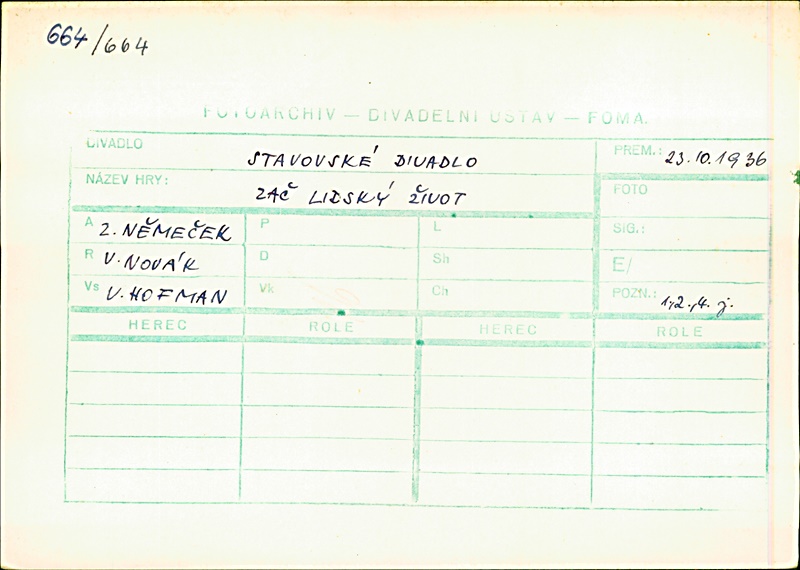 664/664
FOTOARCHIV — DIVADELNÍ ÚSTAV — FOMA.
DIVADLO STAVOVSKÉ DIVADLO PREM.: 23.10.1936
NÁZEV HRY: ZAČ LIDSKÝ ŽIVOT FOTO
A Z. NĚMEČEK P L SIG.:
R V. NOVÁK D Sh E/
Vs V. HOFMAN Vk Ch POZN.: 1,2.,4. j.
HEREC ROLE HEREC ROLE